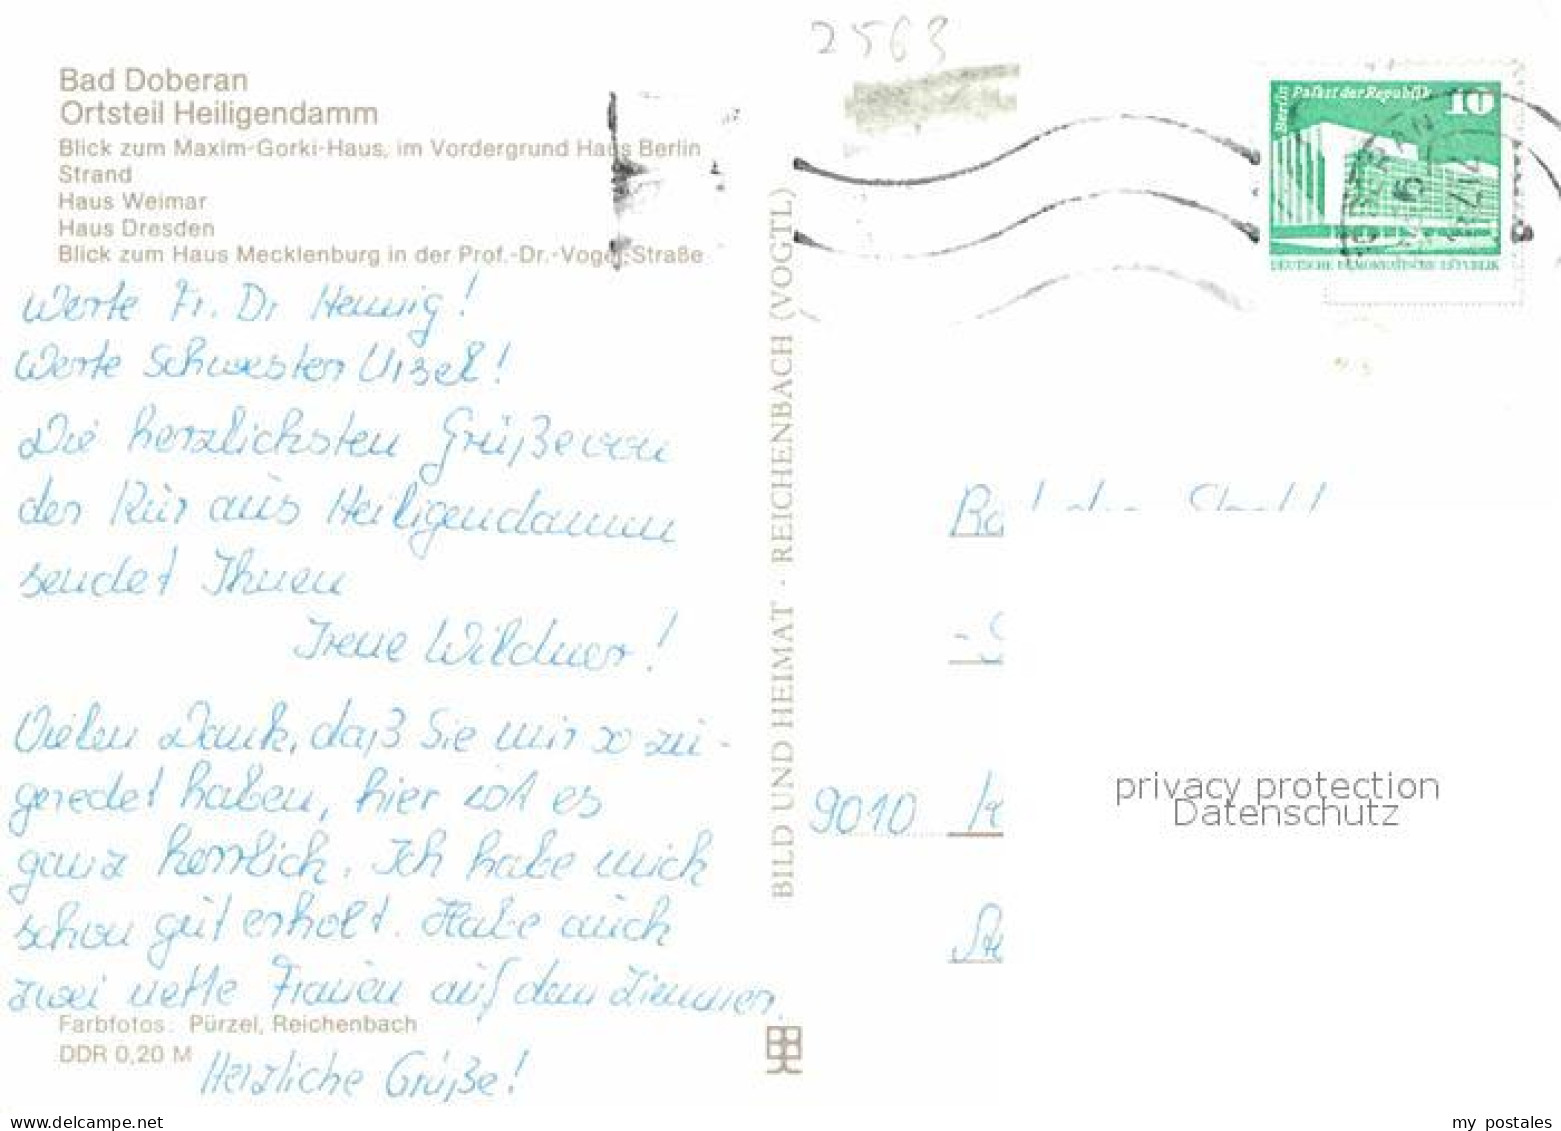 2563
Bad Doberan
Ortsteil Heiligendamm
Blick zum Maxim-Gorki-Haus, im Vordergrund Haus Berlin
Strand
Haus Weimar
Haus Dresden
Blick zum Haus Mecklenburg in der Prof.-Dr.-Vogel-Straße
Berlin Palast der Republik 10
DEUTSCHE DEMOKRATISCHE REPUBLIK
Werte Fr. Dr Hennig!
Werte Schwester Ursel!
Die herzlichsten Grüße von
der Kur aus Heiligendamm
sendet Ihnen
Irene Wildner!
Vielen Dank, daß Sie mir so zu-
geredet haben, hier ist es
ganz herrlich. Ich habe mich
schon gut erholt. Habe auch
zwei nette Frauen auf dem Zimmer.
Herzliche Grüße!
Farbfotos: Pürzel, Reichenbach
DDR 0,20 M
BILD UND HEIMAT · REICHENBACH (VOGTL)
9010
privacy protection
Datenschutz
my postales